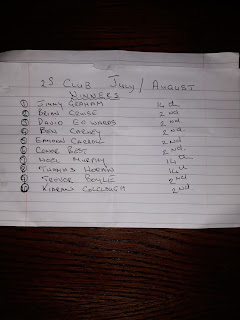 25 CLUB JULY / AUGUST
WINNERS
① JIMMY GRAHAM 14th
② BRIAN CRUISE 2nd
③ DAVID EDWARDS 2nd
④ BEN CARNEY 2nd.
⑤ EAMONN CARROLL 2nd
⑥ CONOR BOST 2nd.
⑦ NOEL MURPHY 14th
⑧ THOMAS HORAN 14th
⑨ TREVOR BOYLE 2nd
⑩ KIARAN COLCLOUGH 2nd